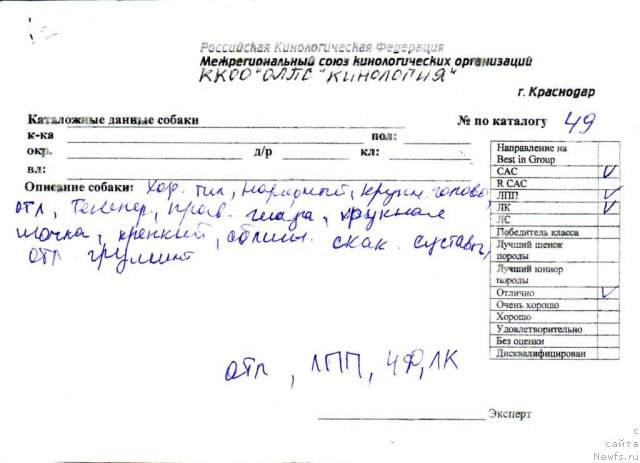 Российская Кинологическая Федерация
Межрегиональный союз кинологических организаций
ККОО "ОЛПС "КИНОЛОГИЯ"
г. Краснодар
Каталожные данные собаки № по каталогу 49
к-ка пол:
окр. д/р кл:
вл:
Описание собаки: Хор. тип, нарядный, крупн. голова,
отл, темпер, прав. глаза, крупная
мочка, крепкий, скак. суставы,
отл груминг
Направление на
Best in Group
CAC
R CAC
ЛПП
ЛК
ЛС
Победитель класса
Лучший щенок
породы
Лучший юниор
породы
Отлично
Очень хорошо
Хорошо
Удовлетворительно
Без оценки
Дисквалифицирован
отл, ЛПП, ЧФ, ЛК
Эксперт
с
сайта
Newfs.ru